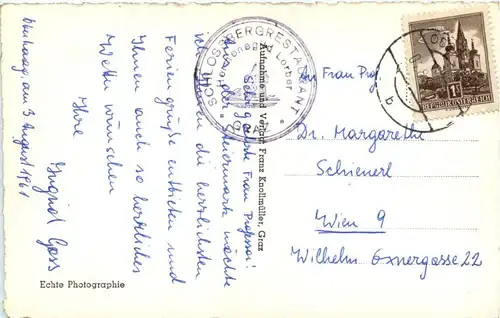 Sehr geehrte Frau Professor!
Aus der Steiermark möchte
ich Ihnen die herzlichsten
Feriengrüße entbieten und
Ihnen auch so herrliches
Wetter wünschen
Ihre
Ingrid Goss
am 3. August 1961
Echte Photographie
SCHLOSSBERGRESTAURANT
Aufnahme und Verlag: Franz Knollmüller, Graz
An Frau Prof.
Dr. Margarethe
Schienerl
Wien 9
Wilhelm Exnergasse 22
REPUBLIK ÖSTERREICH
b